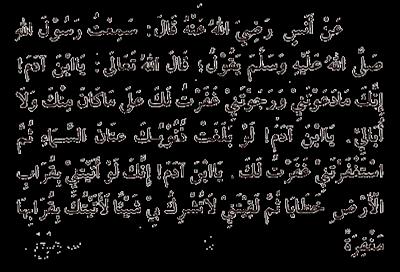 عَنْ أَنَسٍ رَضِيَ اللهُ عَنْهُ قَالَ: سَمِعْتُ رَسُوْلَ اللهِ
صَلَّى اللهُ عَلَيْهِ وَسَلَّمَ يَقُوْلُ: قَالَ اللهُ تَعَالَى: يَاابْنَ آدَمَ!
إِنَّكَ مَادَعَوْتَنِيْ وَرَجَوْتَنِيْ غَفَرْتُ لَكَ عَلَى مَاكَانَ مِنْكَ وَلَا
أُبَالِيْ. يَاابْنَ آدَمَ! لَوْ بَلَغَتْ ذُنُوْبُكَ عَنَانَ السَّمَاءِ ثُمَّ
اسْتَغْفَرْتَنِيْ غَفَرْتُ لَكَ. يَاابْنَ آدَمَ! إِنَّكَ لَوْ أَتَيْتَنِيْ بِقُرَابِ
الْأَرْضِ خَطَايَا ثُمَّ لَقِيْتَنِيْ لَاتُشْرِكُ بِيْ شَيْئًا لَأَتَيْتُكَ بِقُرَابِهَا
مَغْفِرَةً